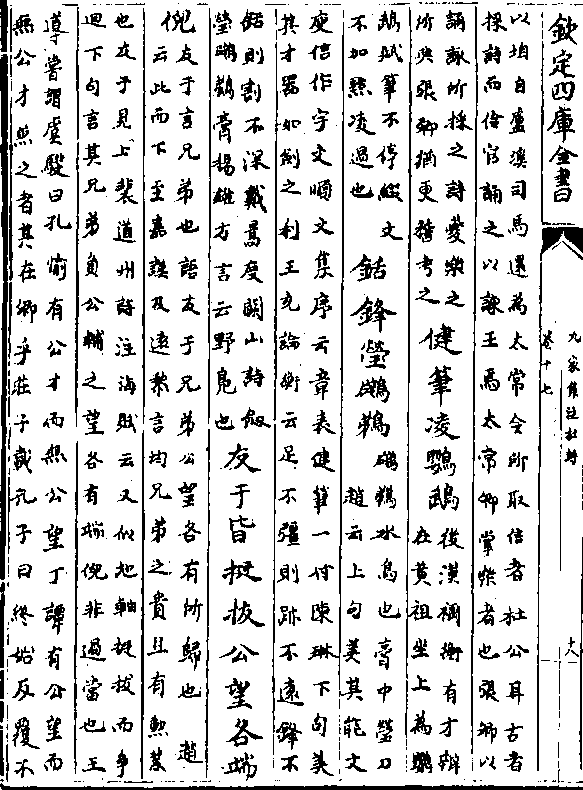 欽定四庫全書
九家集注杜詩
卷十七
十八
以垍自盧溪司馬還為太常令所取信者杜公耳古者
採詩而信官誦之以謙王馬太常卿掌樂者也張卿以
誦詠所採之詩薆樂之
所與張卿猶更稽考之
健筆凌鸚鵡
後漢禰衡有才辯
在黃祖坐上為鸚
鵡賦筆不停綴文
不加點凌過也
銛鋒瑩鸊鵜
鸊鵜水鳥也膏中瑩刀
趙云上句美其能文
庾信作宇文順文集序云章表健筆一付陳琳下句美
其才器如劍之利王充論衡云足不彊則跡不遠鋒不
銛則割不深戴暠度關山詩劔
瑩鸊鵜膏揚雄方言云野鳬也
友于皆挺拔公望各端
倪
友于言兄弟也語友于兄弟公望各有所歸也 趙
云此而下至嘉謨及遠禦言均兄弟之貴且有勲業
也友于見上裴道州詩注海賦云又似地軸挺拔而爭
廻下句言其兄弟負公輔之望各有端倪非過當也王
導嘗謂虞𩦎曰孔愉有公才而無公望丁譚有公望而
無公才無之者其在卿乎莊子載孔子曰終始反覆不